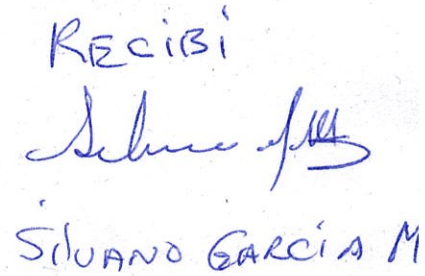 RECIBí
SILVANO GARCíA M